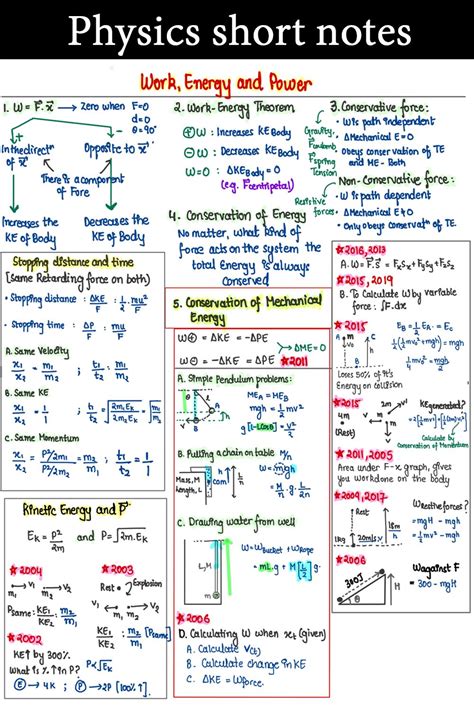 Physics short notes
Work, Energy and Power
1. W = F.x → Zero when F=0
d=0
θ=90°
In the direct^n of x
Opposite to x
There is a component of Force
Increases the KE of Body
Decreases the KE of Body
2. Work-Energy Theorem
⊕W : Increases KE Body
⊖W : Decreases KE Body
W=0 : ΔKE Body = 0
(eg. Fcentripetal)
3. Conservative force:
Gravity,
Fspring
Tension
• W is path independent
• ΔMechanical E=0
• obeys conservat^n of TE and ME - Both
Non-Conservative force:
Resistive forces
• W is path dependent
• ΔMechanical E≠0
• Only obeys conservat^n of TE.
4. Conservation of Energy
No matter, what kind of
force acts on the system the
total Energy is always
Conserved
Stopping distance and time
[Same Retarding force on both]
• Stopping distance : ΔKE/F : 1/2 mu²/F
• Stopping time : ΔP/F : mu/F
A. Same Velocity
x1/x2 = m1/m2 ; t1/t2 = m1/m2
B. Same KE
x1/x2 = 1/1 ; t1/t2 = √2m1Ek/√2m2Ek = √m1/m2
C. Same Momentum
x1/x2 = P²/2m1/P²/2m2 = m2/m1 ; t1/t2 = 1/1
Kinetic Energy and P
Ek = P²/2m and P=√2mEk
★2004
m1 → v1 m2 → v2
Psame: KE1/KE2 : m2/m1
★2003
Rest Explosion
v1 m1 m2 v2
KE1/KE2 : m2/m1 [Psame]
★2002
KE↑ by 300%
What is %↑ in P?
P∝√Ek
Ⓔ → 4K ; Ⓟ → 2P [100%↑]
5. Conservation of Mechanical Energy
W⊕ = -ΔKE = -ΔPE
W⊖ = -ΔKE = ΔPE
ΔME=0
★2011
A. Simple Pendulum problems:
MEA = MEB
mgh = 1/2 mv²
g[L-Lcosθ] = v²/2
B. Pulling a chain on table M/n
Mass, M
Length, L
com
W = m g h
= M/n . g . L/2n
C. Drawing water from well
L,M
m
W = Wbucket + Wrope
= mL.g + M[L/2]g
★2006
D. Calculating W when xt (given)
A. Calculate V(t)
B. Calculate change in KE
C. ΔKE = Wforce.
★2016, 2013
A. W = F.S = FxSx + FySy + FzSz
★2015, 2019
B. To Calculate W by variable
force : ∫F.dx
★2015
EB = 1/2 EA = EC
1/2(1/2mv0²+mgh) = mgh
1/4mv0² = mgh/2
Loses 50% of it's
Energy on collision
★2015
4m
(Rest)
KE generated?
Calculate by
Conservation of Momentum
★2011, 2005
Area under F-x graph, gives
you work done on the body
★2009, 2017
Rest
1kg
20m/s
18m
h
W restive forces?
= mgH - mgh
= 1/2mv² - mgh
★2006
300J
H
W against F
= 300 - mgH